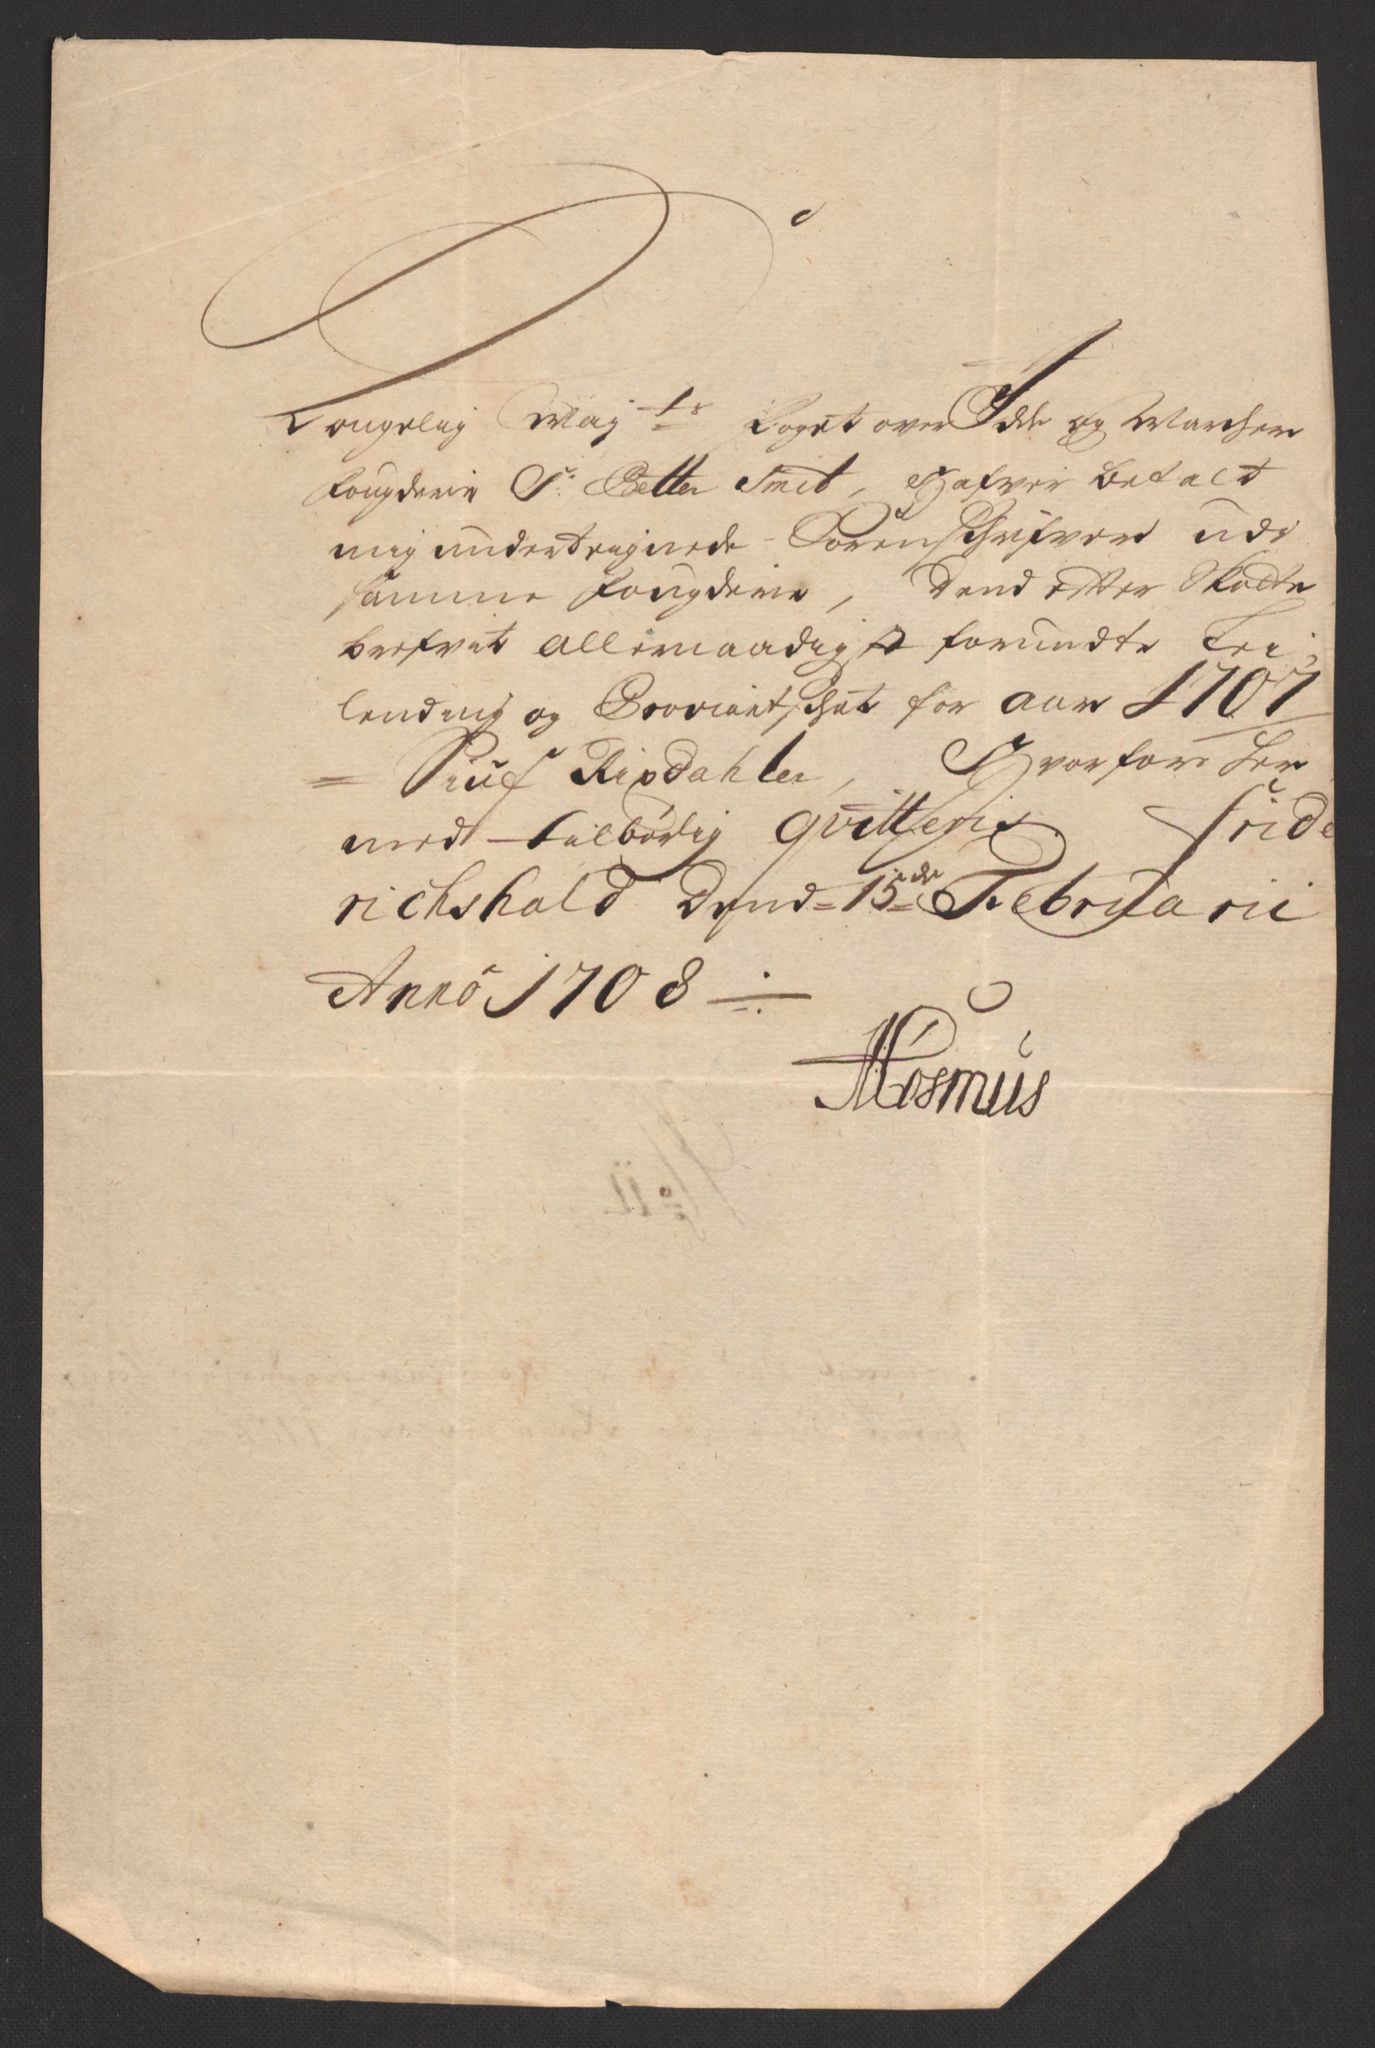 Kongelig Maj.ts Foget over Idde og Marcher
Fougderie Sr. Petter Smid, Hafver betalt
mig undertegnede Sorenschrifver udi
samme Fougderie, dend efter Skatte
brefvet allernaadigst forundte Lei-
lending og Proviantschat for aar 1707
= Siuf Rixdahler, Hvorfore her
med tilbørlig qvitteris. Fride
richshald dend 15de Februarii
Anno 1708
Rosmus